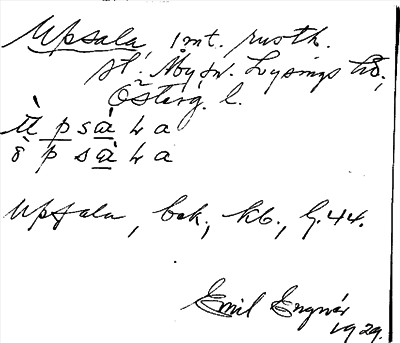 Upsala, 1 mt. ruoth.
st. Åby sn. Lysings hd,
Österg. l.
ù p s à L a
ò p s à L a
Upsala, bok, Kb., G. 44.
Emil Engnér
1929.